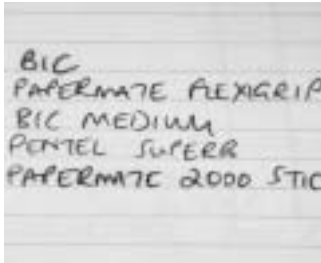 BIC
PAPERMATE FLEXIGRIP
BIC MEDIUM
PENTEL SUPERB
PAPERMATE 2000 STIC